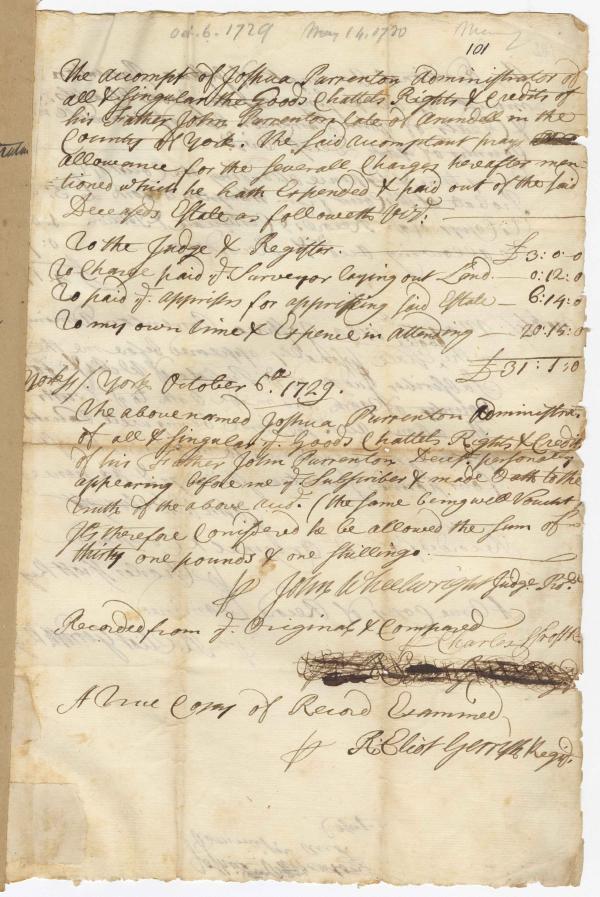 Oct. 6. 1729 May 14. 1730
101
The Accompt of Joshua Purrenton Administrator of
all & Singular the Goods Chattels Rights & Credits of
his Father John Purrenton late of Arundell in the
County of York. The said Accomptant prays
allowance for the severall Charges hereafter men
tioned which he hath Expended & paid out of the said
Deceased's Estate as followeth Vizt.
To the Judge & Register. £3:0:0
To Charge paid ye. Surveyor laying out Land. 0:12:0
To paid ye. apprisrs for apprising said Estate 6:14:0
To my own time & Expence in attending 20:15:0
£31:1:0
York ss/. York October 6th. 1729.
The above named Joshua Purrenton Administra.
of all & Singular ye. Goods Chattels Rights & Credits
of his Father John Purrenton Decest personally
appearing before me ye. Subscriber & made Oath to the
truth of the above Acct. (the same being well Voucht
It's therefore Considered he be allowed the Sum of
thirty one pounds & one shillings.
John Wheelwright Judge Prob.
Recorded from ye. Original & Compared
Charles Frost R.
A True Copy of Record Examined
R. Eliot Gerrish Regr.